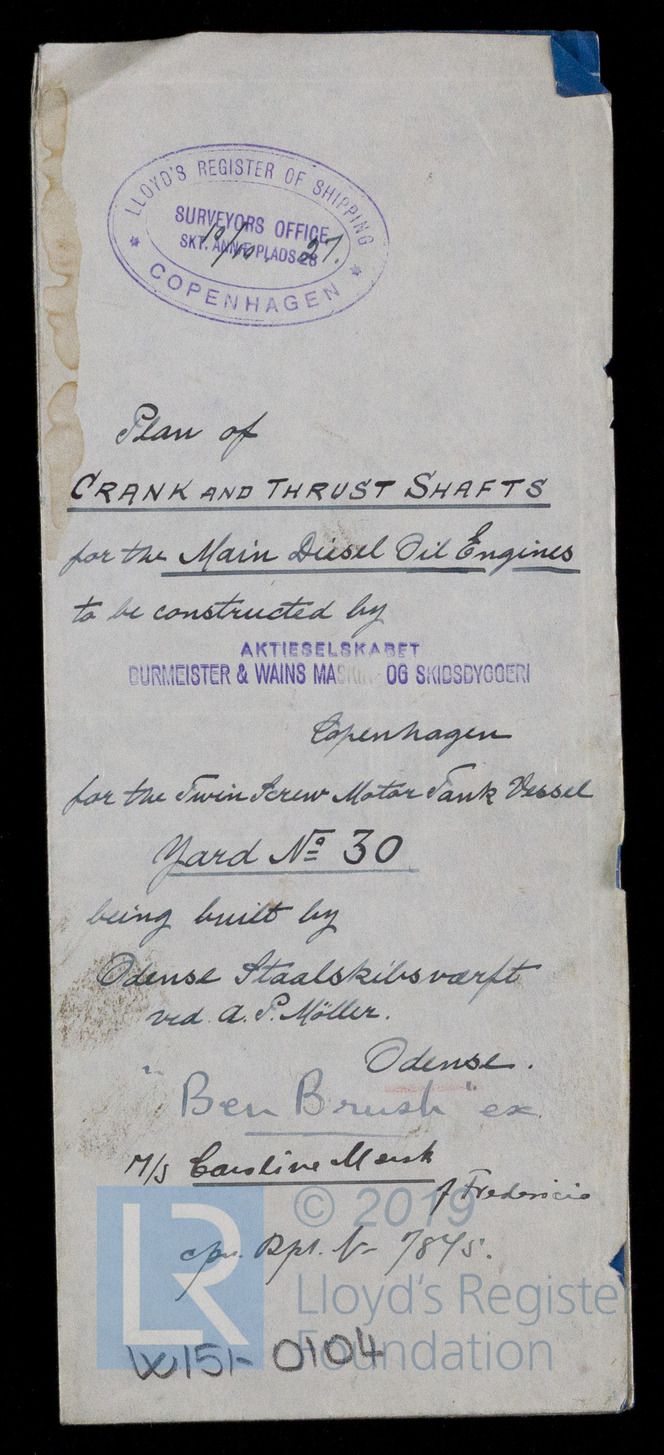 LLOYD'S REGISTER OF SHIPPING
SURVEYORS OFFICE
SKT. ANNÆ PLADS 28
10/10 27.
COPENHAGEN
Plan of
CRANK AND THRUST SHAFTS
for the Main Diesel Oil Engines
to be constructed by
AKTIESELSKABET
BURMEISTER & WAINS MASKIN- OG SKIBSBYGGERI
Copenhagen
for the Twin Screw Motor Tank Vessel
Yard No 30
being built by
Odense Staalskibsværft
ved A. P. Möller.
Odense.
"Ben Brush" ex
M/S Caroline Mærsk
of Fredericia
Rpt. No 7845.
LR
© 2019
Lloyd's Register
Foundation
W151-0104